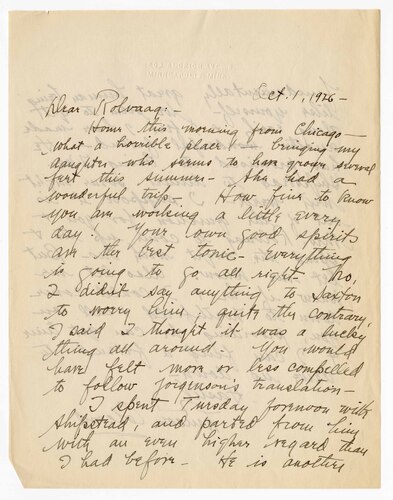 MINNEAPOLIS, MINN.
Oct. 1, 1926 -
Dear Rolvaag: -
Home this morning from Chicago -
what a horrible place! - bringing my
daughter, who seems to have grown several
feet this summer - She had a
wonderful trip - How fine to know
you are working a little every
day! Your own good spirits
are the best tonic - Everything
is going to go all right. No,
I didn't say anything to Saxton
to worry him, quite the contrary,
I said I thought it was a lucky
thing all around. You would
have felt more or less compelled
to follow Jorgenson's translation -
I spent Tuesday forenoon with
Shipstead - and parted from him
with an even higher regard than
I had before - He is another